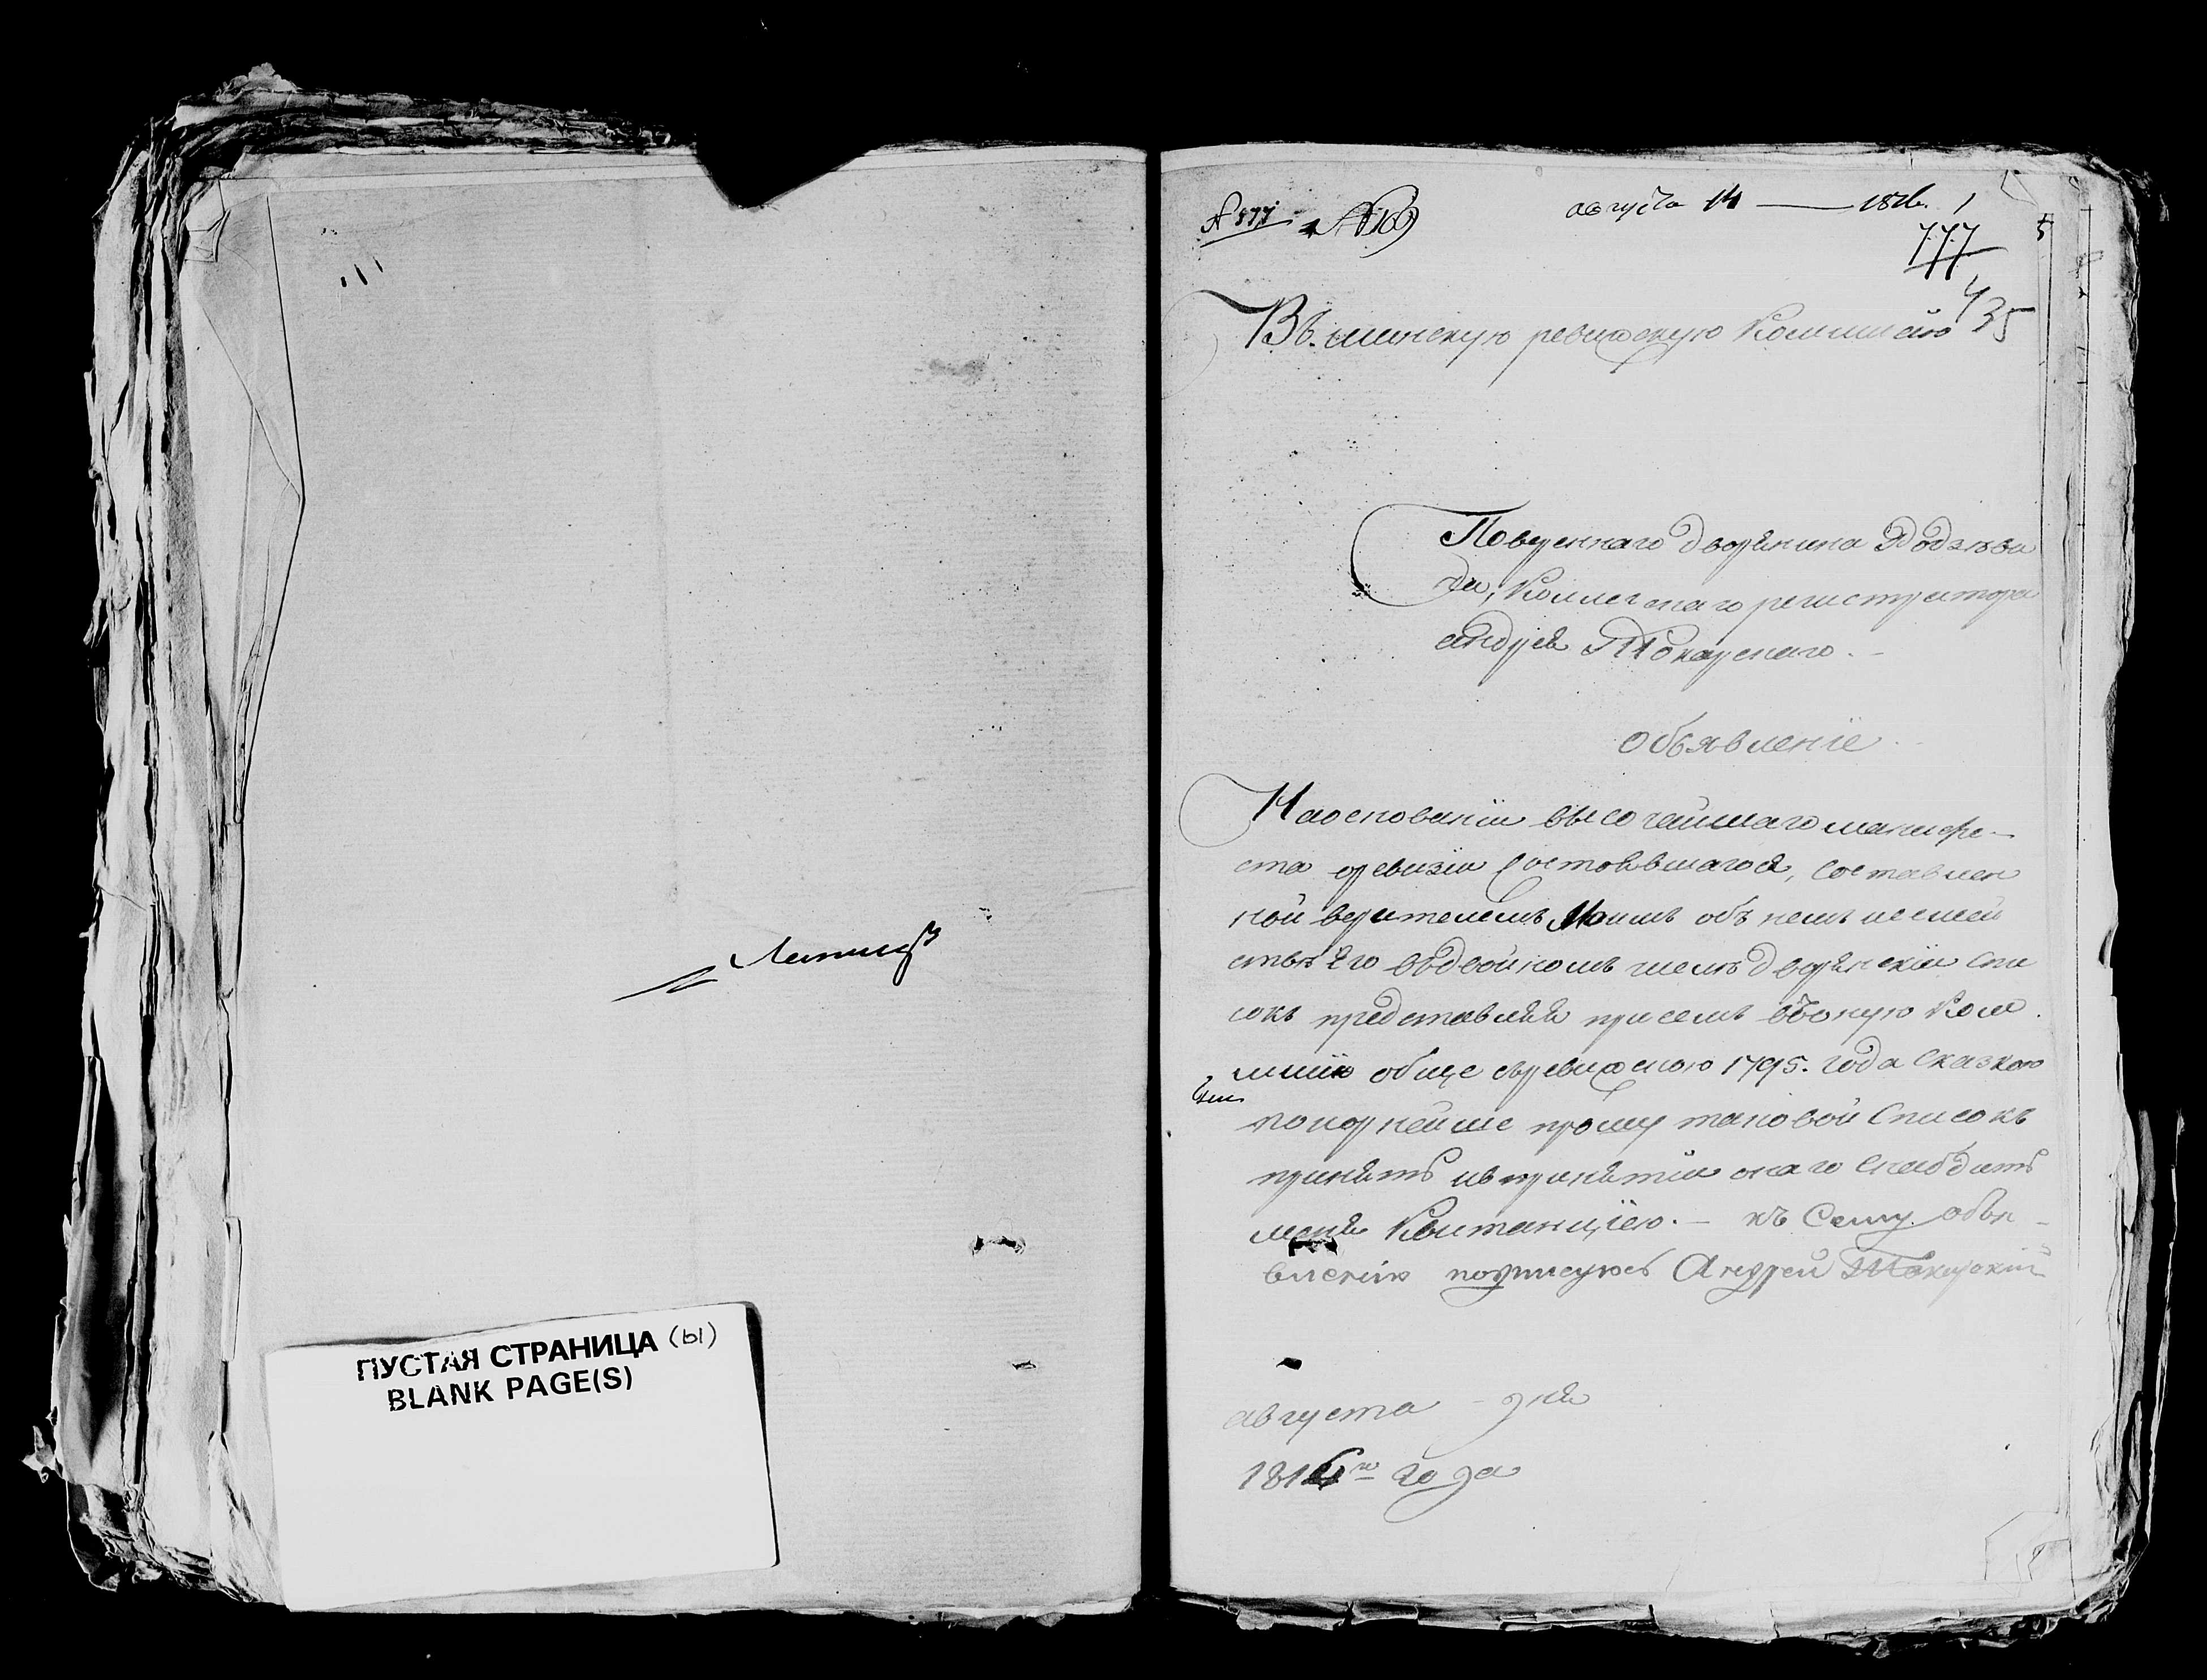 ПУСТАЯ СТРАНИЦА (ы)
BLANK PAGE(S)
августа 14 — 181
777
435
Въ минскую ревижскую Коммисїю
Повереннаго дворянина Додзѣва
Коллегскаго регистратора
андрея Токарскаго.
Объявленїе
На основанїи высочайшаго манифе-
ста оревизїи состоявшагося, составлен
ной верителемъ Моимъ объ немъ исемей
ствѣ Его въдвойномъ числѣ дворянскїи спи
сокъ представляя присемъ въоную Ком
мисїю обще съревижскою 1795. года сказкою
покорнейше прошу таковой Списокъ
принять ивпринятїи онаго снабдить
меня Квитанцїею. — къ Сему объя-
вленїю подписуюсь Андрей Токарскїй
августа – дня
1816го года